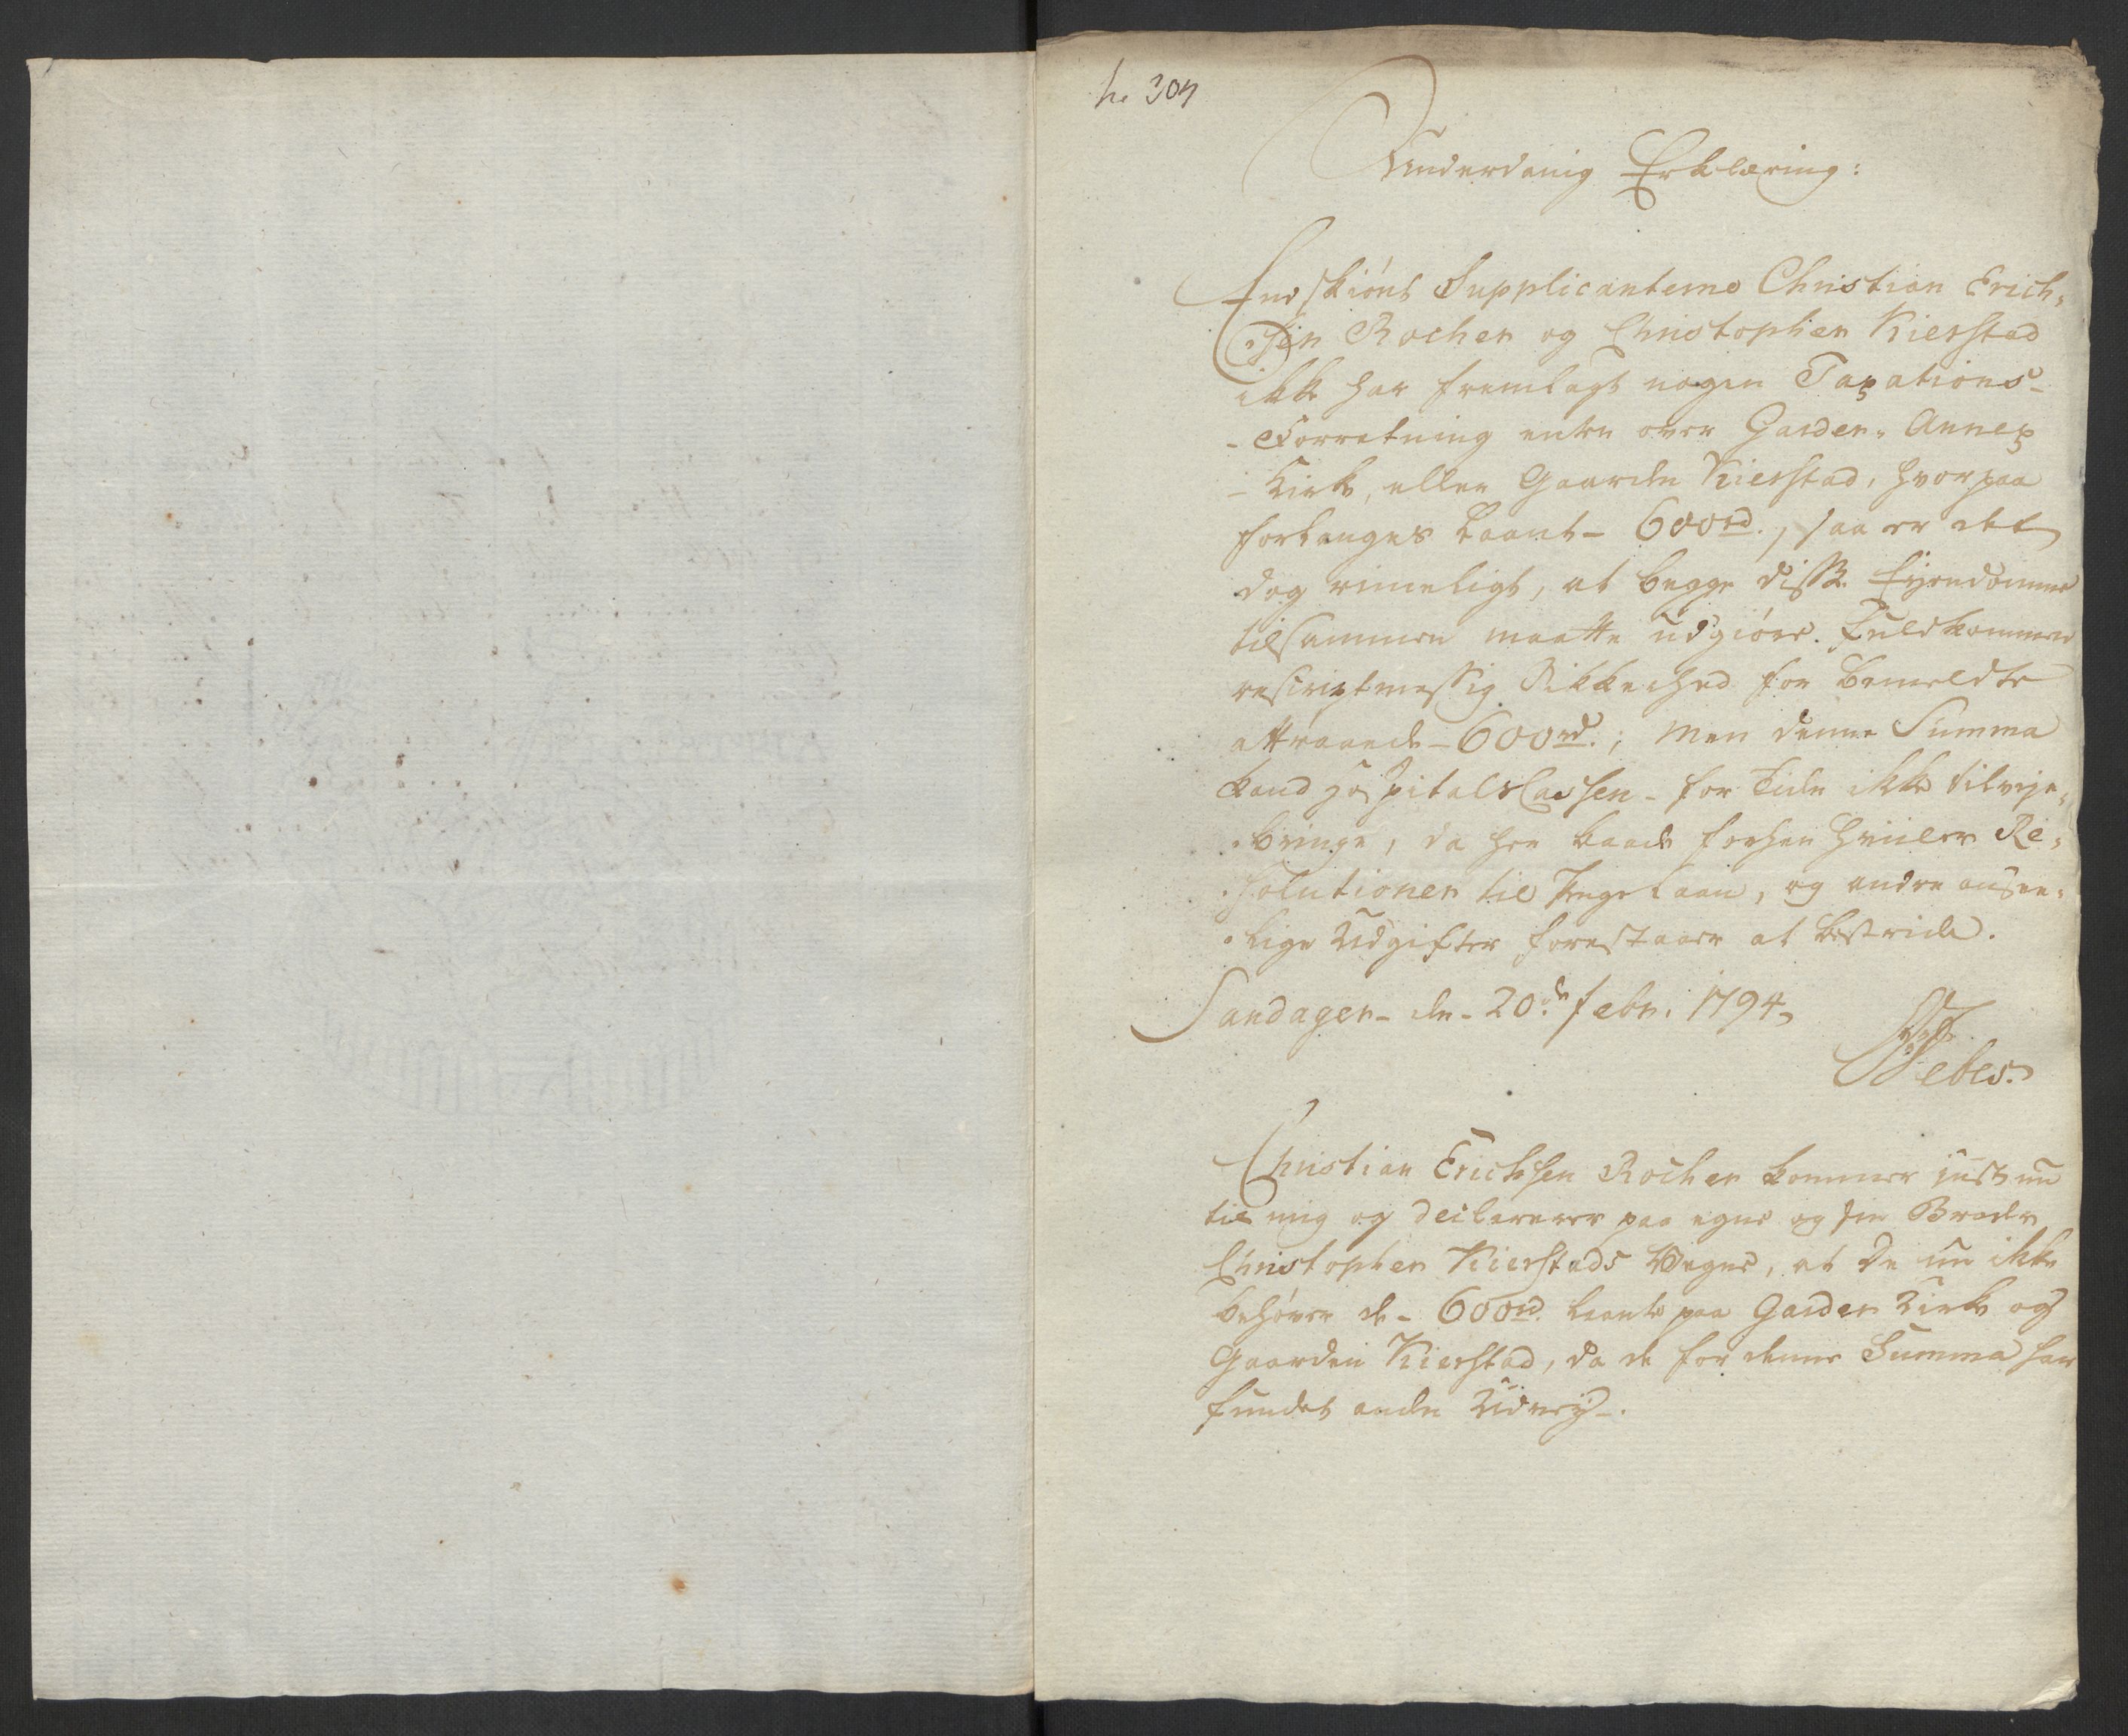 Underdanig Erklæring:
Endskiønt Supplicanterne Christian Erich-
-sen Rocher og Christopher Kierstad
ikke har fremlagt nogen Taxations-
-Forretning enten over Garder-Annex
-Kirke, eller Gaarden Kierstad, hvorpaa
forlanges laant- 600rd., saa er det
dog rimeligt, at begge disse Eyendomme
tilsammen maatte udgiøre fuldkommen
rescriptmessig Sikkerhed for bemeldte
attraaede- 600rd.; Men denne Summa
kand Hospitals Cassen- for Tiden ikke tilveje-
-bringe, da her baade forhen hviler Re-
-solutioner til Penge Laan, og andre ansee-
-lige Udgifter forestaaer at bestride.
Sandager- den- 20de febr. 1794
Tebes.
Christian Erichsen Rocher kommer just nu
til mig og declarerer paa egne og sin Broder
Christopher Kierstads Vegne, at De nu ikke
behøver de- 600rd. laante paa Garder Kirke og
Gaarden Kierstad, da de for denne Summa har
fundet anden Udvej-.